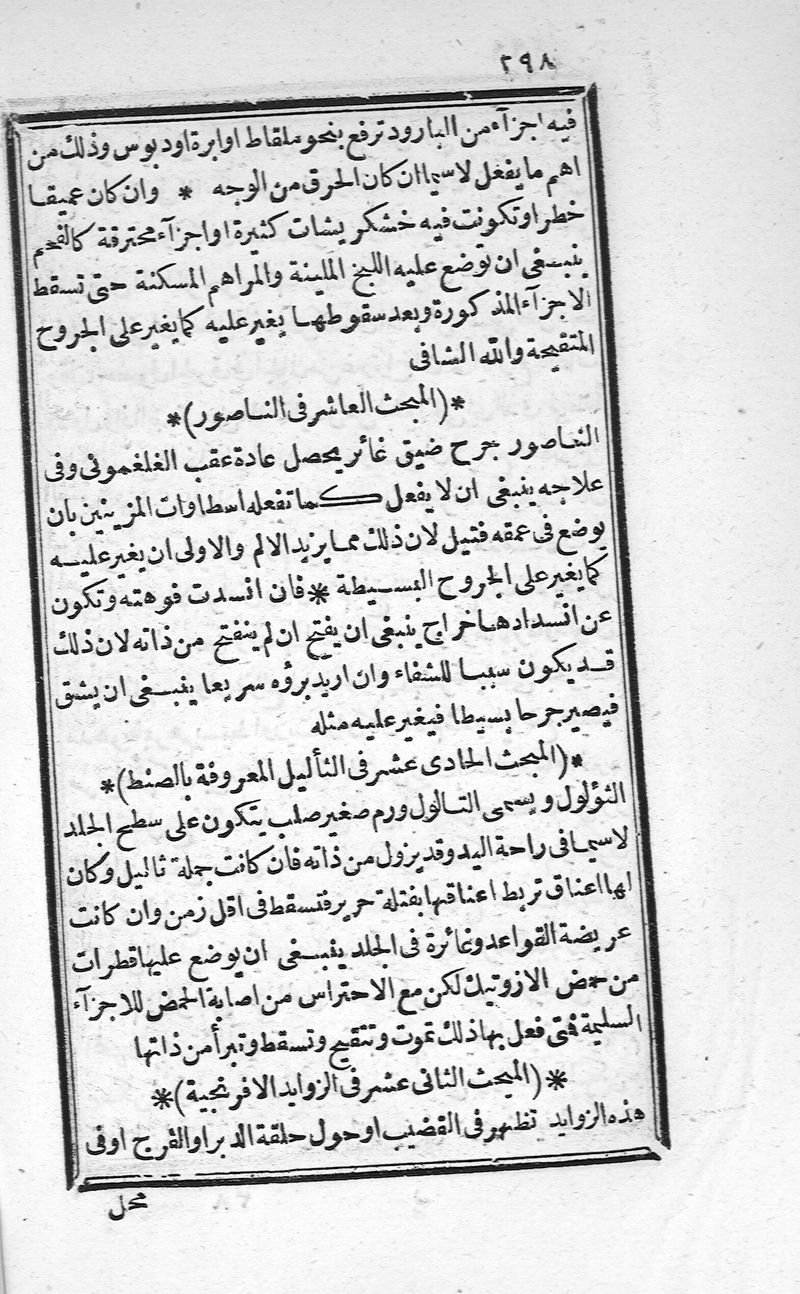 ٢٩٨
فيه اجزآء من البارود ترفع بنحو ملقاط او ابرة او دبوس وذلك من
اهم ما يفعل لاسيما ان كان الحرق من الوجه * وان كان عميقا
خطر او تكونت فيه خشكريشات كثيرة او اجزآء محترقة كالفحم
ينبغى ان توضع عليه اللبخ الملينة والمراهم المسكنة حتى تسقط
الاجزآء المذكورة وبعد سقوطها يغير عليه كما يغير على الجروح
المتقيحة والله الشافى
*(المبحث العاشر فى الناصور)*
الناصور جرح ضيق غائر يحصل عادة عقب الفلغمونى وفى
علاجه ينبغى ان لا يفعل كما تفعله اسطاوات المزينين بان
يوضع فى عمقه فتيل لان ذلك مما يزيد الالم والاولى ان يغير عليه
كما يغير على الجروح البسيطة * فان انسدت فوهته وتكون
عن انسدادها خراج ينبغى ان يفتح ان لم ينفتح من ذاته لان ذلك
قد يكون سببا للشفاء وان اريد برؤه سريعا ينبغى ان يشق
فيصير جرحا بسيطا فيغير عليه مثله
*(المبحث الحادى عشر فى الثأليل المعروفة بالصنط)*
الثؤلول ويسمى التالول ورم صغير صلب يتكون على سطح الجلد
لاسيما فى راحة اليد وقد يزول من ذاته فان كانت جملة ثاليل وكان
لها اعناق تربط اعناقها بفتلة حرير فتسقط فى اقل زمن وان كانت
عريضة القواعد وغائرة فى الجلد ينبغى ان يوضع عليها قطرات
من حمض الازوتيك لكن مع الاحتراس من اصابة الحمض للاجزآء
السليمة فمتى فعل بها ذلك تموت وتتقيح وتسقط وتبرأ من ذاتها
*(المبحث الثانى عشر فى الزوايد الافرنجية)*
هذه الزوايد تظهر فى القضيب او حول حلقة الدبر او الفرج او فى
محل